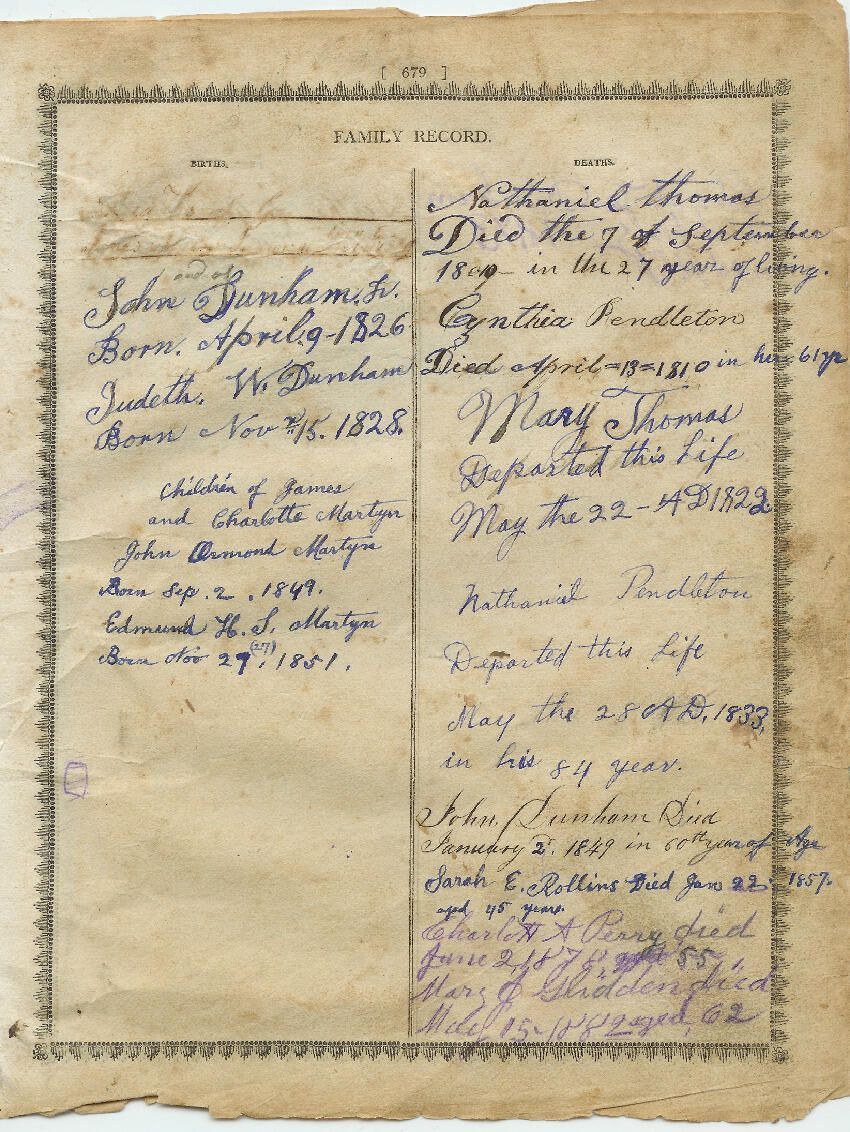 [ 679 ]
FAMILY RECORD.
BIRTHS.
John Dunham. Jr.
Born. April. 9-1826
Judeth. W. Dunham
Born Nov 15. 1828.
Children of James
and Charlotte Martyn
John Ormond Martyn
Born Sep. 2. 1849.
Edmund H. S. Martyn
Born Nov 29 (27), 1851.
DEATHS.
Nathaniel Thomas
Died the 7 of September
in the 27 year of living.
Cynthia Pendleton
Died April = 13 = 1810 in her 61 yr
Mary Thomas
Departed this Life
May the 22 - AD 1822
Nathaniel Pendleton
Departed this Life
May the 28 AD. 1833,
in his 84 year.
John Dunham Died
January 2. 1849 in 60th year of Age
Sarah E. Rollins Died Jan 22. 1857.
aged 45 years.
Charlott A Perry died
June 2, 187 aged 55
Mary Glidden died
May 15-188 aged, 62